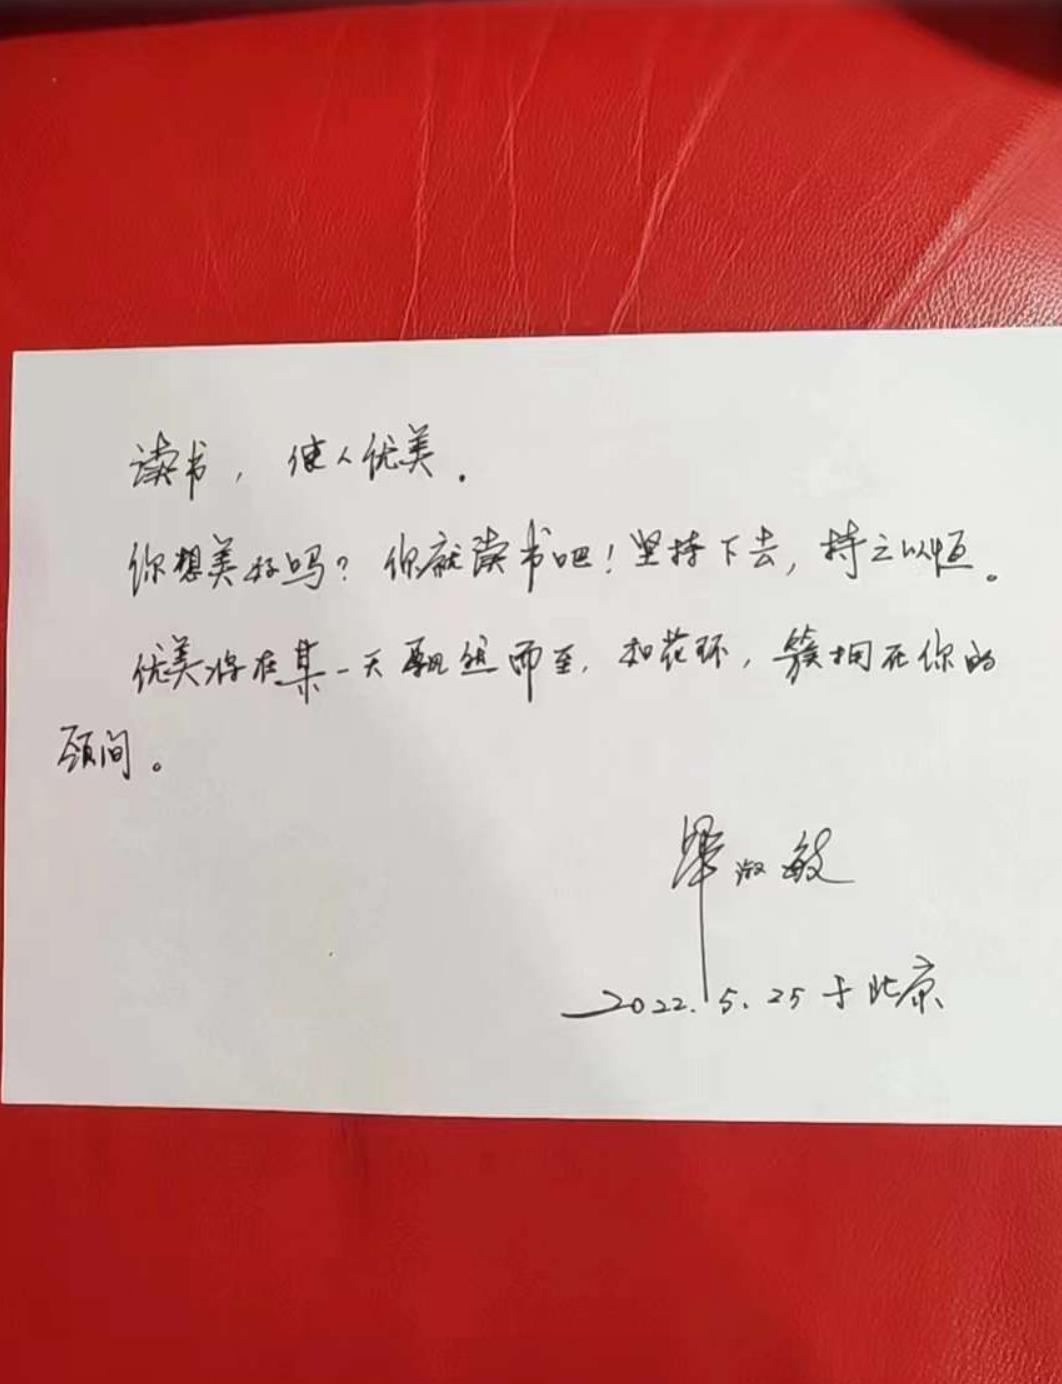 读书，使人优美。
你想美好吗？你就读书吧！坚持下去，持之以恒。
优美将在某一天飘然而至，如花环，簇拥在你的
颈间。
毕淑敏
2022.5.25于北京